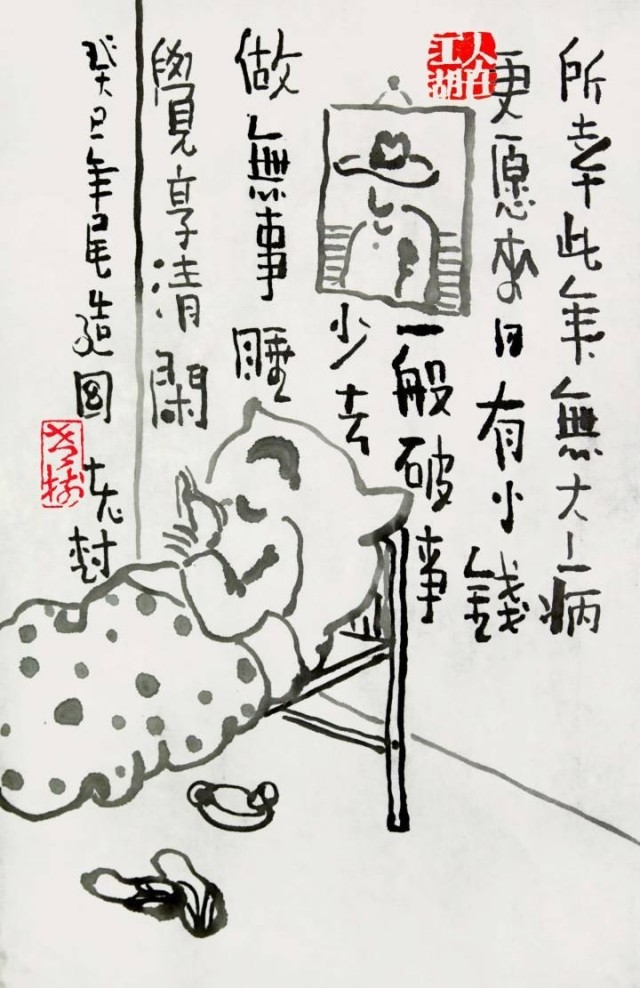 所幸此年無大病
更愿来日有小錢
一般破事
少去
做無事睡
覺享清閑
癸巳年尾造图 老树
人在江湖
老树